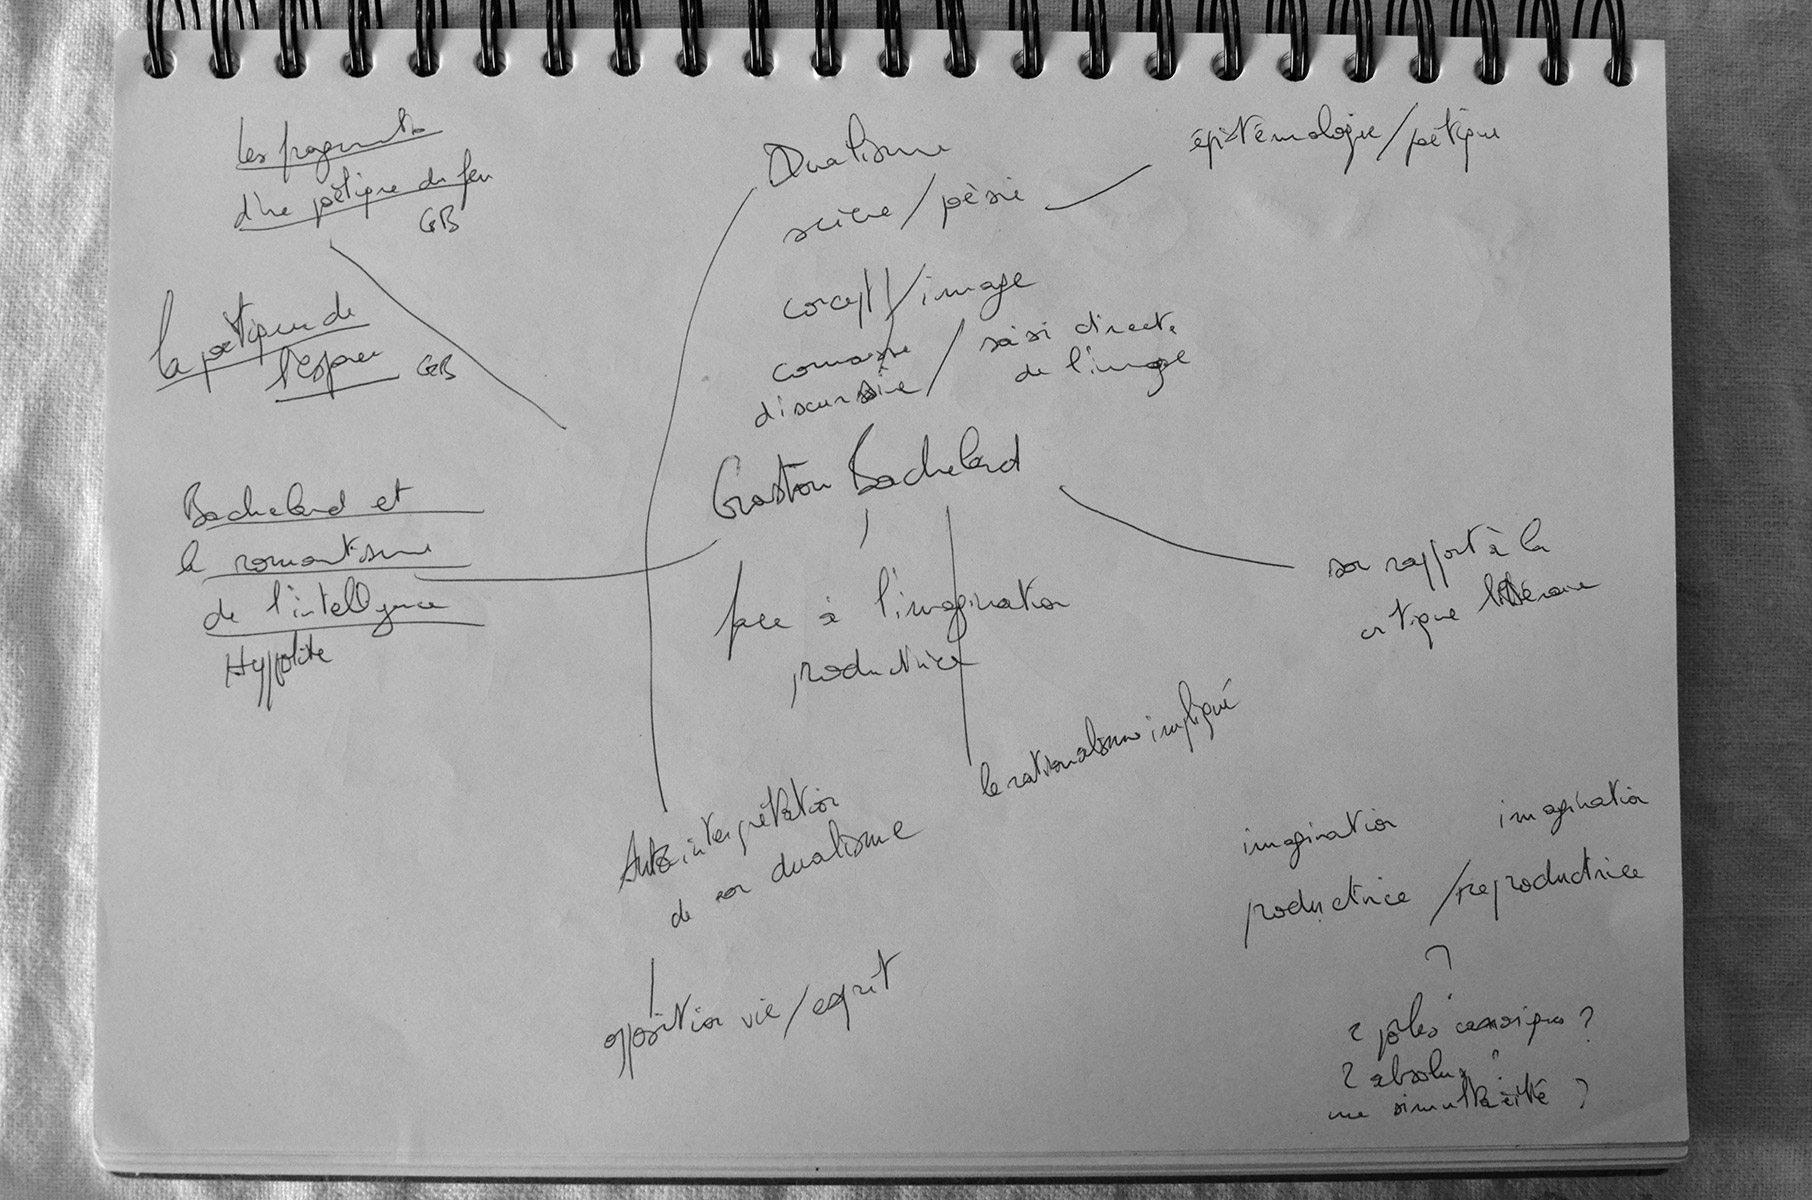 Les fragments
d'une poétique du feu
GB
La poétique de
l'Espace GB
Bachelard et
le romantisme
de l'intelligence
Hyppolite
Dualisme
science / poésie
épistémologie / poétique
concept / image
connaissance / saisi directe
discursive / de l'image
Gaston Bachelard
face à l'imagination
productrice
son rapport à la
critique littéraire
le rationalisme impliqué
Auto interprétation
de son dualisme
opposition vie / esprit
imagination imagination
productrice / reproductrice
?
2 pôles ?
2 absolus ?
une simultanéité ?